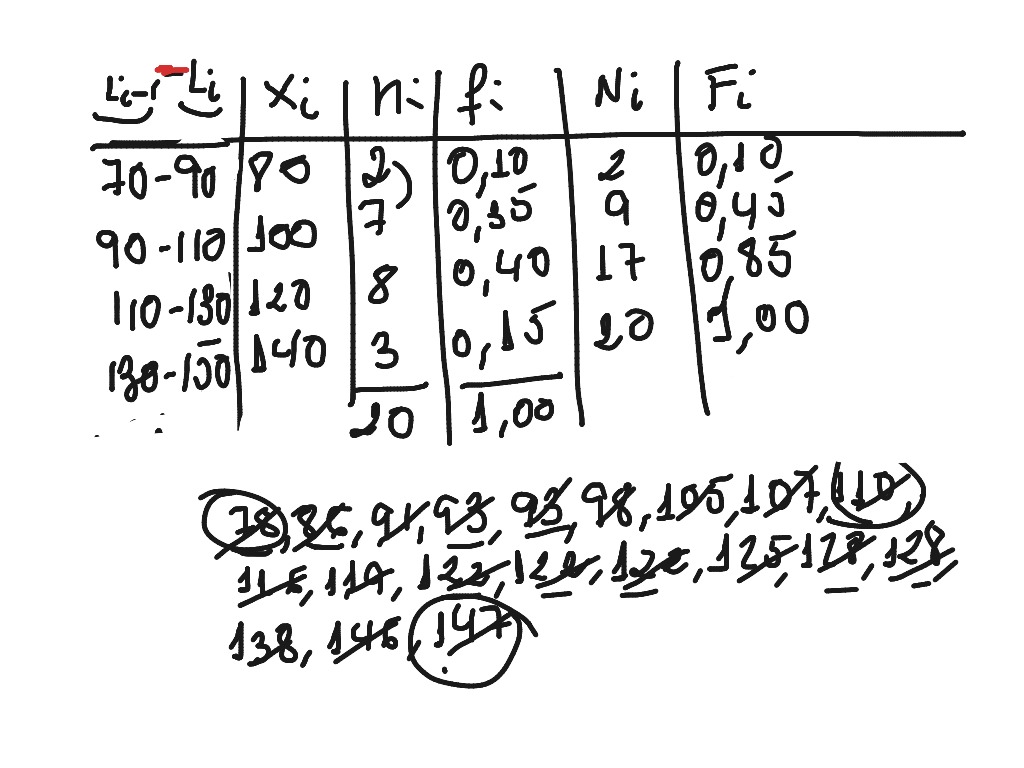 Li-1 - Li xi ni fi Ni Fi
70-90 80 2 0,10 2 0,10
90-110 100 7 0,35 9 0,45
110-130 120 8 0,40 17 0,85
130-150 140 3 0,15 20 1,00
20 1,00
78, 86, 91, 93, 93, 98, 105, 107, 110,
116, 119, 122, 122, 122, 125, 128, 128,
138, 146, 147